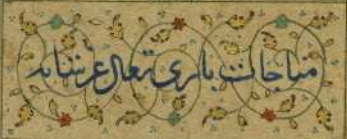 مناجات باری تعالی عز شانه